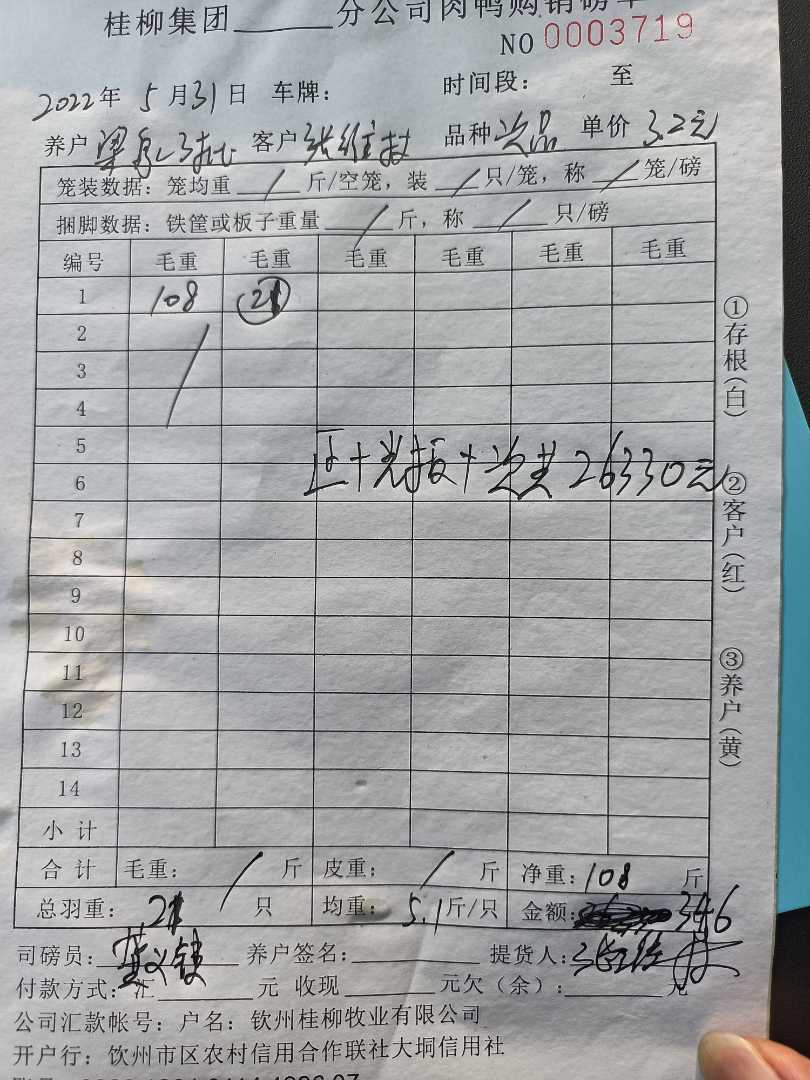 桂柳集团______分公司肉鸭购销磅单
NO 0003719
2022年 5月31日 车牌: 时间段: 至
养户 梁 客户 张维 品种 次品 单价 3.2元
笼装数据: 笼均重 / 斤/空笼, 装 / 只/笼, 称 / 笼/磅
捆脚数据: 铁筐或板子重量 / 斤, 称 / 只/磅
编号 毛重 毛重 毛重 毛重 毛重 毛重
1 108 21
2 /
3
4
5
正+光板+次共 26330元
6
7
8
9
10
11
12
13
14
小计
合计 毛重: / 斤 皮重: / 斤 净重: 108 斤
总羽重: 21 只 均重: 5.1 斤/只 金额: 346
司磅员: 养户签名: 提货人:
付款方式: 汇______元 收现______元欠(余):______元
公司汇款帐号: 户名: 钦州桂柳牧业有限公司
开户行: 钦州市区农村信用合作联社大垌信用社
①存根(白)
②客户(红)
③养户(黄)